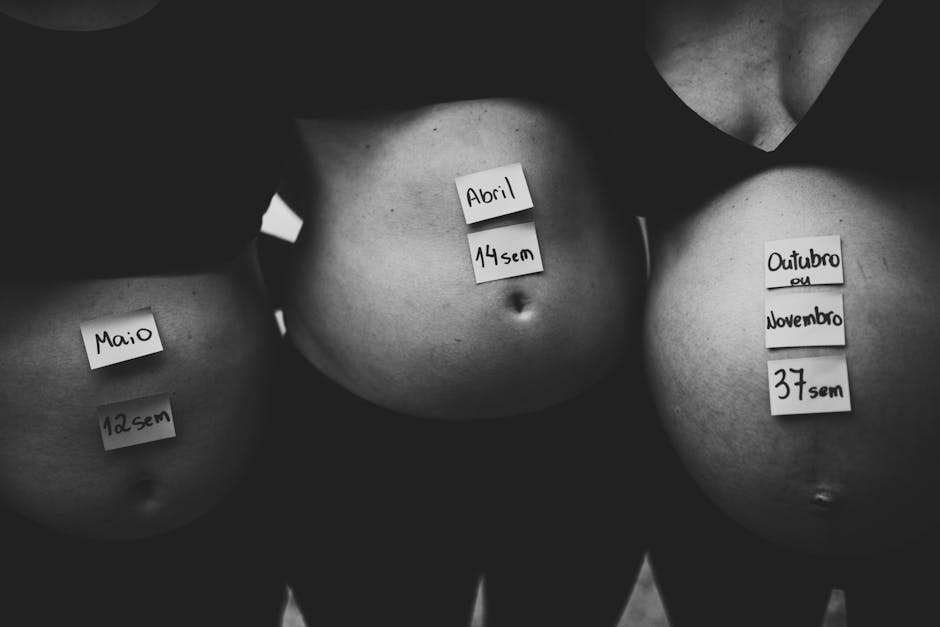 Maio
12sem
Abril
14sem
Outubro
ou
Novembro
37sem